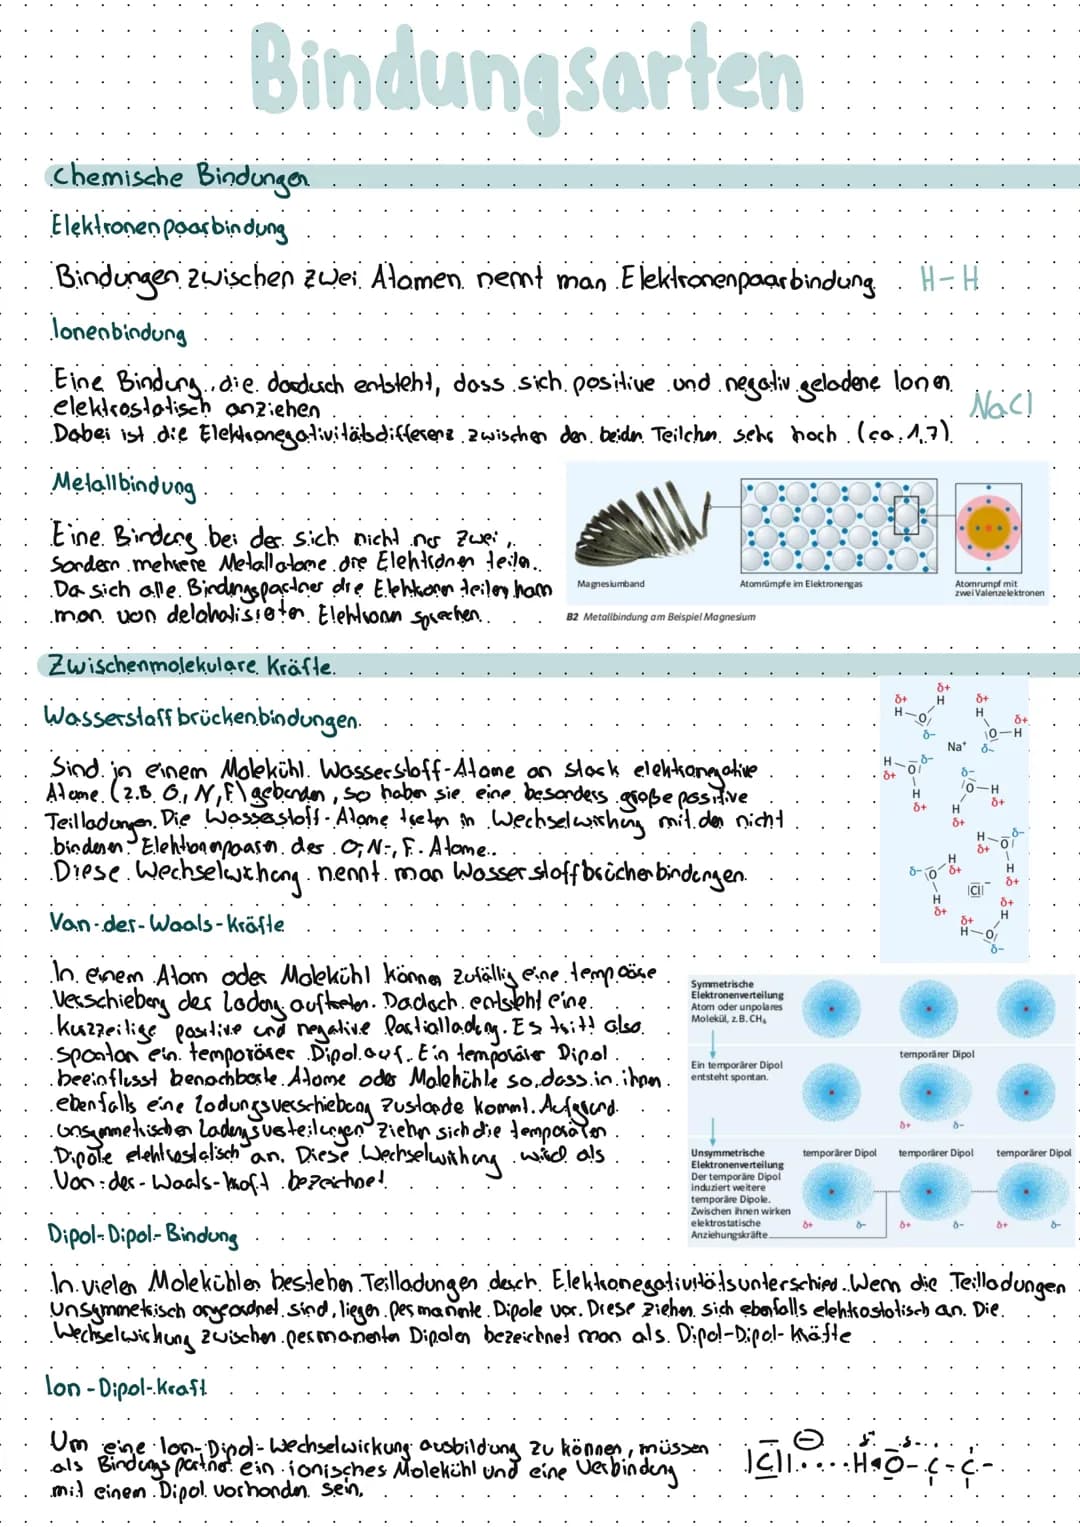 Bindungsarten
Chemische Bindungen
Elektronenpaarbindung
Bindungen zwischen zwei Atomen nennt man Elektronenpaarbindung H-H
Ionenbindung
Eine Bindung, die dadurch entsteht, dass sich positive und negativ geladene Ionen
elektrostatisch anziehen
NaCl
Dabei ist die Elektronegativitätsdifferenz zwischen den beidn Teilchn sehr hoch (ca. 1,7).
Metallbindung
Eine Bindung bei der sich nicht nur zwei,
Sondern mehrere Metallatome die Elektronen teilen.
Da sich alle Bindungspartner die Elektronn teilen kann
man von delokalisierten Elektronn sprechen.
Magnesiumband
Atomrümpfe im Elektronengas
Atomrumpf mit
zwei Valenzelektronen
B2 Metallbindung am Beispiel Magnesium
Zwischenmolekulare Kräfte
Wasserstoffbrückenbindungen
Sind in einem Molekühl Wasserstoff-Atome an stack elektronegative
Atome (z.B. O, N, F) gebunden, so haben sie eine besonders große positive
Teilladungen. Die Wasserstoff-Atome treten in Wechselwirkung mit den nicht
bindenen Elektronenpaarn der O, N-, F- Atome.
Diese Wechselwirkung nennt man Wasserstoffbrückenbindungen.
δ+ H O δ- δ+ H
δ+ H O H δ+ δ-
Na+
H δ+ O δ- H δ+
δ- O H δ+ H δ+
H δ+ O δ- H δ+
δ- O H δ+ H δ+
|Cl|-
δ+ H O δ- H δ+
Van-der-Waals-Kräfte
In einem Atom oder Molekühl können zufällig eine temporäre
Verschiebung der Ladung auftreten. Dadurch entsteht eine
kurzzeitige positive und negative Partialladung. Es tritt also
spontan ein temporärer Dipol auf. Ein temporärer Dipol
beeinflusst benachbarte Atome oder Molekühle so, dass in ihnen
ebenfalls eine Ladungsverschiebung zustande kommt. Aufgrund
unsymmetrischen Ladungsverteilungen ziehn sich die temporären
Dipole elektrostatisch an. Diese Wechselwirkung wird als
Van-der-Waals-Kraft bezeichnet.
Symmetrische
Elektronenverteilung
Atom oder unpolares
Molekül, z.B. CH₄
Ein temporärer Dipol
entsteht spontan.
temporärer Dipol
δ+ δ-
Unsymmetrische
Elektronenverteilung
Der temporäre Dipol
induziert weitere
temporäre Dipole.
Zwischen ihnen wirken
elektrostatische
Anziehungskräfte.
temporärer Dipol temporärer Dipol temporärer Dipol
δ+ δ- δ+ δ- δ+ δ-
Dipol-Dipol-Bindung
In vielen Molekühlen bestehen Teilladungen durch Elektronegativitätsunterschied. Wenn die Teilladungen
Unsymmetrisch angeordnet sind, liegen permanente Dipole vor. Diese ziehen sich ebenfalls elektrostatisch an. Die
Wechselwirkung zwischen permanenten Dipolen bezeichnet man als Dipol-Dipol-Kräfte
Ion-Dipol-Kraft
Um eine Ion-Dipol-Wechselwirkung ausbildung zu können, müssen
als Bindungspartner ein ionisches Molekühl und eine Verbindung
mit einem Dipol vorhanden sein.
|Cl|⊖ .... H-O-C-C-